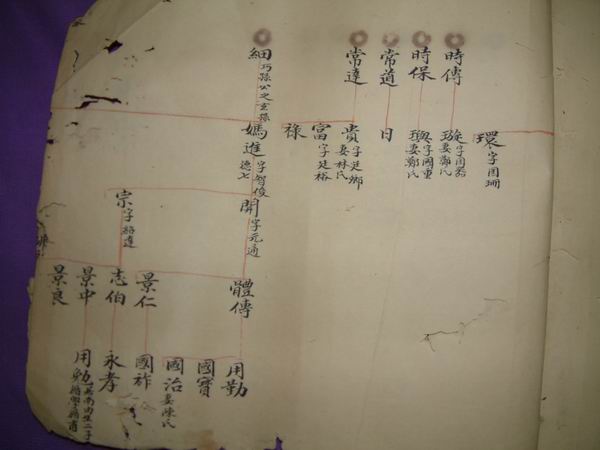 環 字國珊
時傳
璇 字國器 妻鄭氏
時保
璵 字國重 妻鄭氏
常道
日
常達
貴 字廷鄉 妻林氏
富 字廷裕
祿
細 巧孫公之玄孫
媽進 字智俊 德七
開 字元通
體傳
用勤
國寶
國治 妻陳氏
宗 字裕達
景仁
國祚
志伯
永孝
景中
用勉
景良